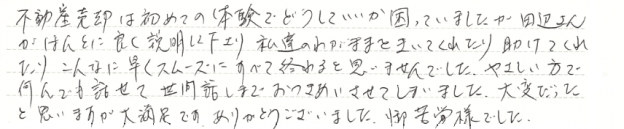 不動産売却は初めての体験でどうしていいか困っていましたが田辺さん
がほんとに良く説明し下さり私達のわがままをきいてくれたり助けてくれ
たりこんなに早くスムーズにすべて終わると思いませんでした。やさしい方で
何んでも話せて世間話しまでおつきあいさせてしまいました。大変だった
と思いますが大満足です。ありがとうございました。御苦労様でした。